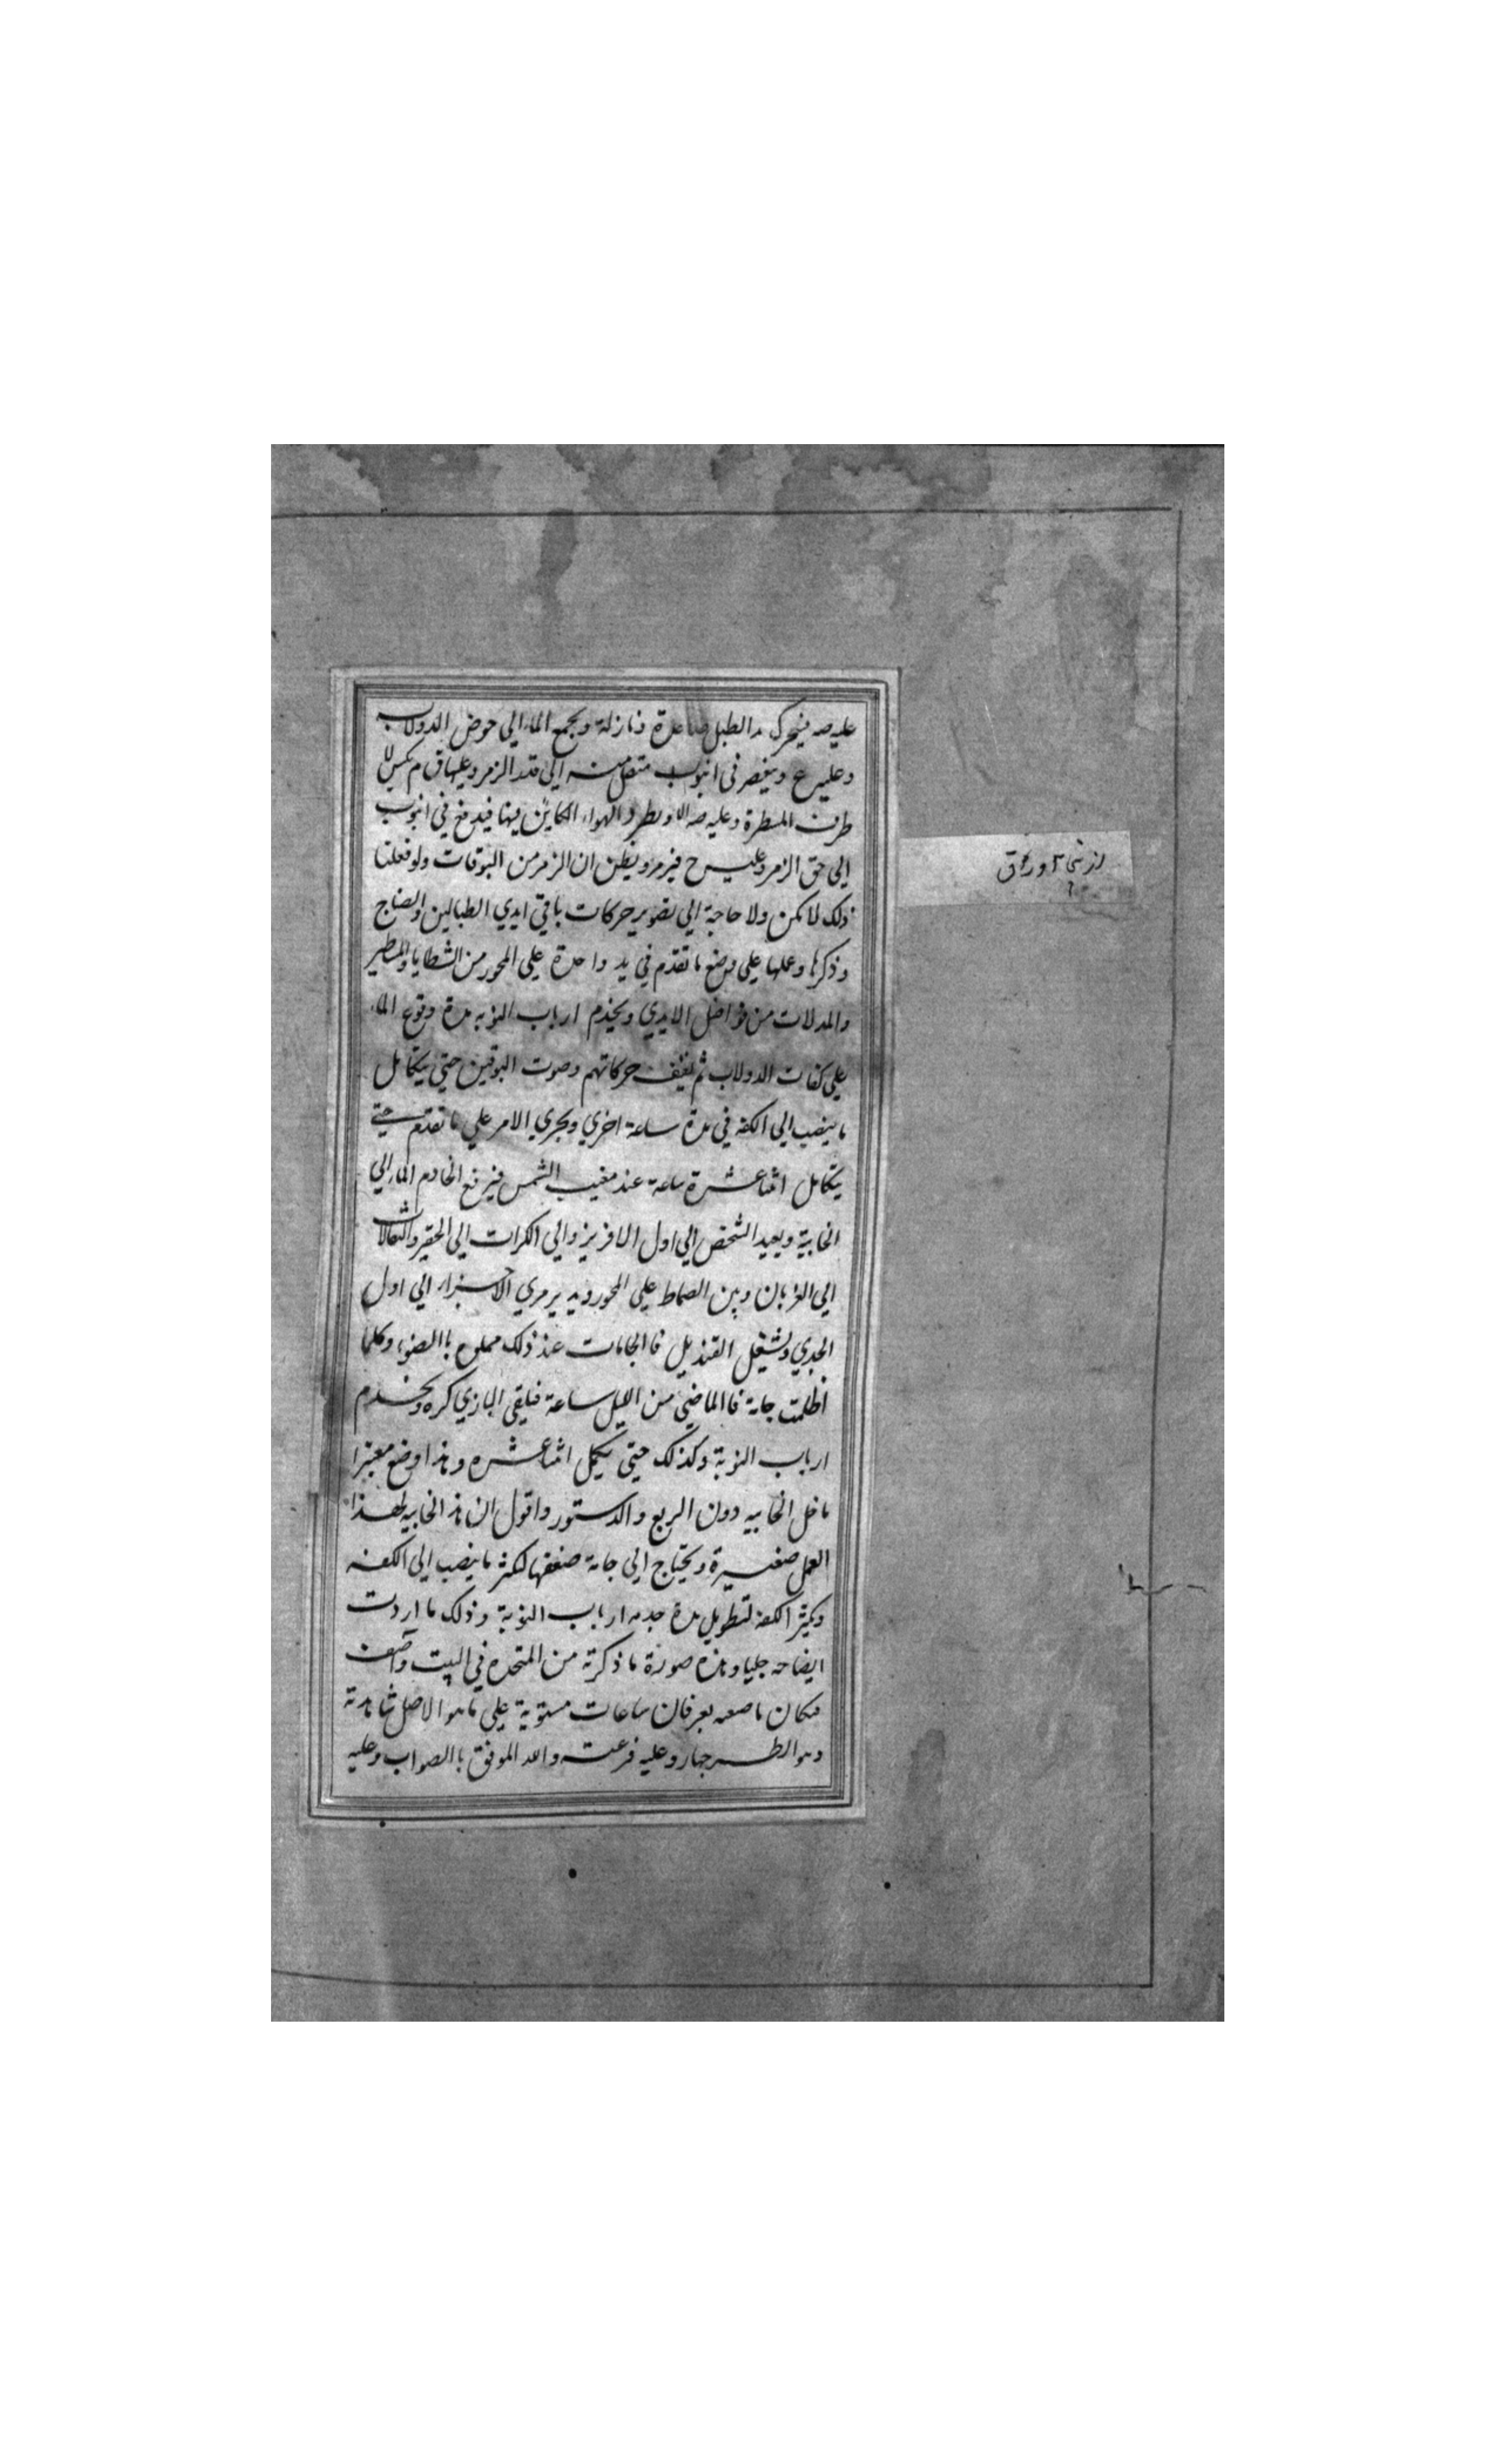 عليه صه فيتحرك يد الطبل صاعدة ونازلة ويجمع الماء الي حوض الدولاب
وعليه ع وينحصر في انبوب متصل منه الي قدر الزمر وعليها ق م
طرف المسطرة وعليه صه الا ويطرد الهواء الكاين فيها فيدفع في انبوب
الي حق الزمر وعليه ح فيزمر ويظن ان الزمر من البوقات ولو فعلنا
ذلك لامكن ولا حاجة الي تصوير حركات باقي ايدي الطبالين والصناج
وذكرها وعملها علي وضع ما تقدم في يد واحدة علي المحور من الشظايا والمساطير
والمدلات من فواضل الايدي ويخدم ارباب النوبه مدة وقوع الماء
علي كفات الدولاب ثم تقف حركاتهم وصوت البوقين حتي يتكامل
ما ينصب الي الكفه في مدة ساعة اخري ويجري الامر علي ما تقدم حتي
يتكامل اثنا عشرة ساعة عند مغيب الشمس فيرفع الخادم الماء الي
الخابية ويعيد الشخص الي اول الافريز والي الكرات الي الحقير والثقالات
الي الغربان وبين الضاط علي المحور ويدير مري الاجزاء الي اول
الجدي ويشعل القنديل فاالجامات عند ذلك مملوه باالضوء وكلما
اظلمت جامة فاالماضي من الليل ساعة فيلقي البازي كره ويخدم
ارباب النوبة وكذلك حتي يكمل اثنا عشره وهذا وضع معتبرا
ماخل الخابيه دون الربع والدستور واقول ان هذه الخابيه لهذا
العمل صغيرة ويحتاج الي جامة ضعفها لكثر ما ينصب الي الكفه
وتكبير الكفه لتطويل مدة خدمه ارباب النوبة وذلك ما اردت
ايضاحه جليا وهذه صورة ما ذكرته من المتخده في البيت واصف
مكان ما صعه يعرفان ساعات مستوية علي ما هو الاصل شاهدته
وهو الطرجهار وعليه فرعت والله الموفق باالصواب وعليه
از شی ۲ ورق